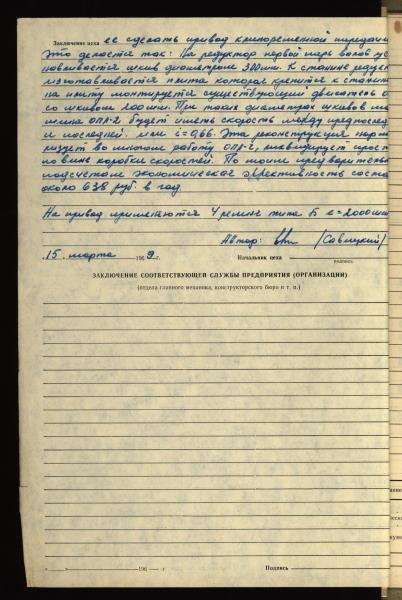 Заключение цеха ее сделать привод клиноременной передачи
Это делается так: На редуктор первой пары валов ус
навливается шкив диаметром 300мм. К станине редук
изготавливается плита которая крепится к станин
на плиту монтируется существующий двигатель
со шкивом 200мм. При таких диаметрах шкивов
машина ОПЛ-2 будет иметь скорость между предпослед
и последней. или i=0,66. Эта реконструкция норм
лизует во многом работу ОПЛ-2, ликвидирует прост
по вине коробки скоростей. По моим предваритель
подсчетам экономическая эффективность соста
около 638 руб. в год
На привод применяются 4 ремня типа Б L=2000мм
Автор: (Савицкий)
„15 марта 1969 г. Начальник цеха
подпись
ЗАКЛЮЧЕНИЕ СООТВЕТСТВУЮЩЕЙ СЛУЖБЫ ПРЕДПРИЯТИЯ (ОРГАНИЗАЦИИ)
(отдела главного механика, конструкторского бюро и т. п.)
„ “ 196 г. Подпись